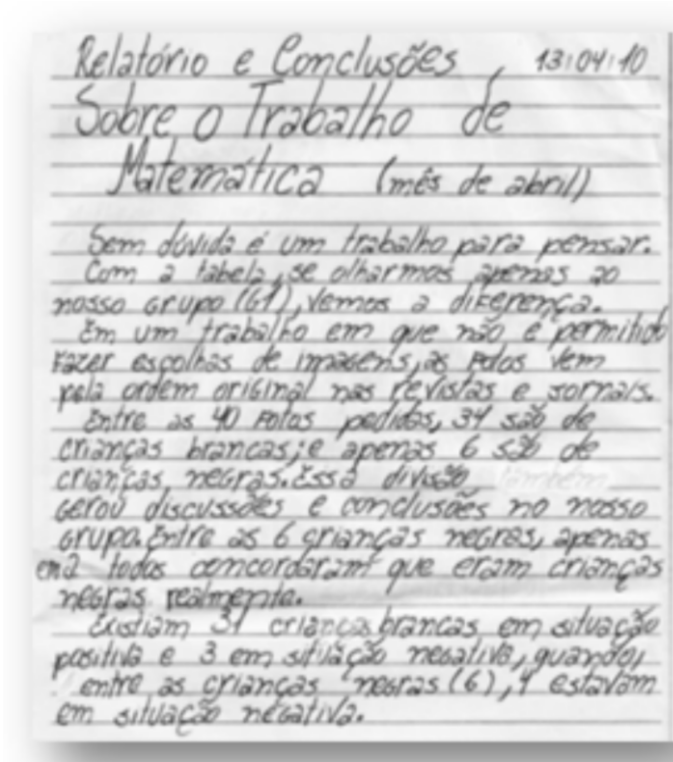 Relatório e Conclusões 13:04:10
Sobre o Trabalho de
Matemática (mês de abril)
Sem dúvida é um trabalho para pensar.
Com a tabela, se olharmos apenas ao
nosso grupo (G1), vemos a diferença.
Em um trabalho em que não é permitido
fazer escolhas de imagens, as fotos vem
pela ordem original nas revistas e jornais.
Entre as 40 fotos pedidas, 34 são de
crianças brancas; e apenas 6 são de
crianças negras. Essa divisão também
gerou discussões e conclusões no nosso
grupo. Entre as 6 crianças negras, apenas
em 2 todos concordaram que eram crianças
negras realmente.
Existiam 31 crianças brancas em situação
positiva e 3 em situação negativa, quando,
entre as crianças negras (6), 4 estavam
em situação negativa.